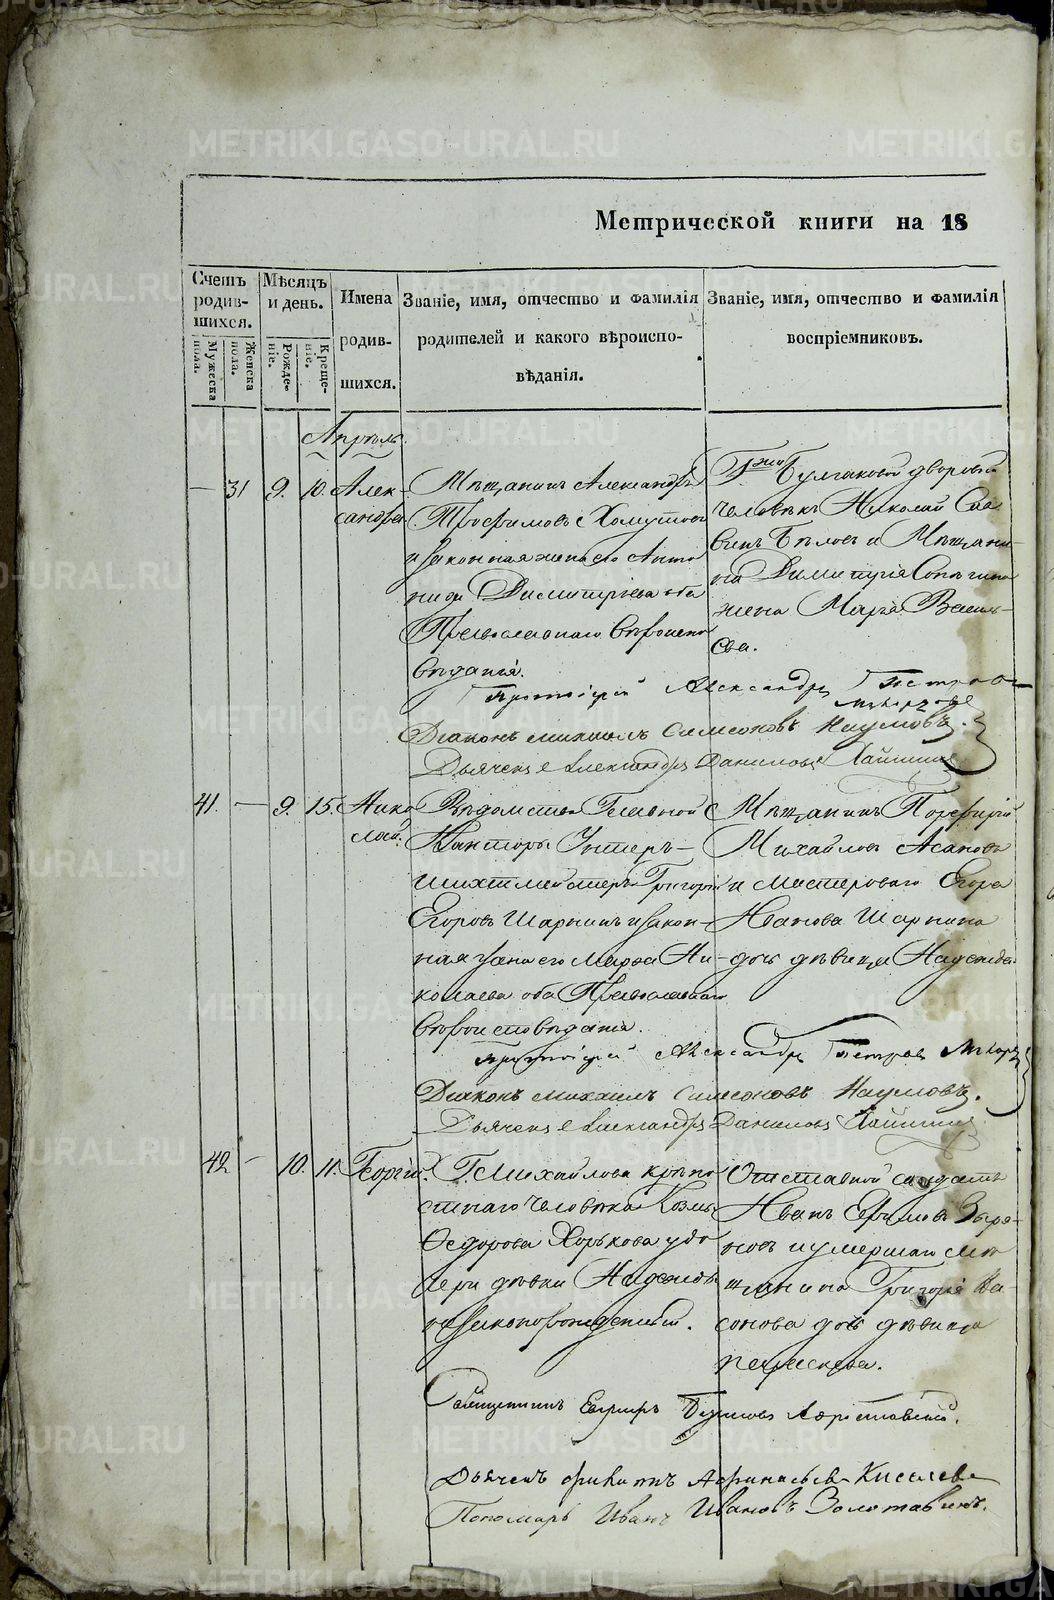 METRIKI.GASO-URAL.RU
Метрической книги на 18
Счетъ родившихся.
Мужеска пола.
Женска пола.
Мѣсяцъ и день.
Рожденіе.
Крещеніе.
Имена родившихся.
Званіе, имя, отчество и фамилія
родителей и какого вѣроиспо-
вѣданія.
Званіе, имя, отчество и фамилія
воспріемниковъ.
Апрѣль
— 31 9. 10. Алек-
сандра
Мѣщанинъ Александръ
Трофимовъ Хомутовъ
и законная жена его Анто
нида Димитріева оба
Православнаго вѣроиспо
вѣданія.
Г-жи Булгаковой дворовой
человѣкъ Николай Сав
винъ Бѣловъ и Мѣщани-
на Димитрія
жена Марѳа Василь-
ева.
Протоіерей Александръ Петровъ
Діаконъ Михаилъ Симеоновъ Наумовъ.
Дьячекъ Александръ Даниловъ
41. — 9. 15. Нико
лай.
Вѣдомства Главной
Канторы Унтеръ-
шихтмейстеръ Григорій
Егоровъ Шарнинъ и закон-
ная жена его Марѳа Ни-
колаева оба Православнаго
вѣроисповѣданія.
Мѣщанинъ Порфирій
Михайловъ Асановъ
и Мастероваго Егора
Иванова Шарнина
дочь дѣвица Надежда.
Протоіерей Александръ Петровъ
Діаконъ Михаилъ Симеоновъ Наумовъ.
Дьячекъ Александръ Даниловъ
42 — 10. 11. Георгій.
Г. Михайлова крѣпо
стнаго человѣка Козмы
Ѳедорова Хорькова у до
чери дѣвки Надежды
незаконорожденный.
Отставной солдатъ
Иванъ Ефимовъ Зыря-
новъ и умершаго мѣ
щанина Григорія Ва-
сонова дочь дѣвица
Параскева.
Священникъ
Дьячекъ Филиппъ Афанасьевъ Киселевъ
Пономарь Иванъ Ивановъ Золотавинъ.